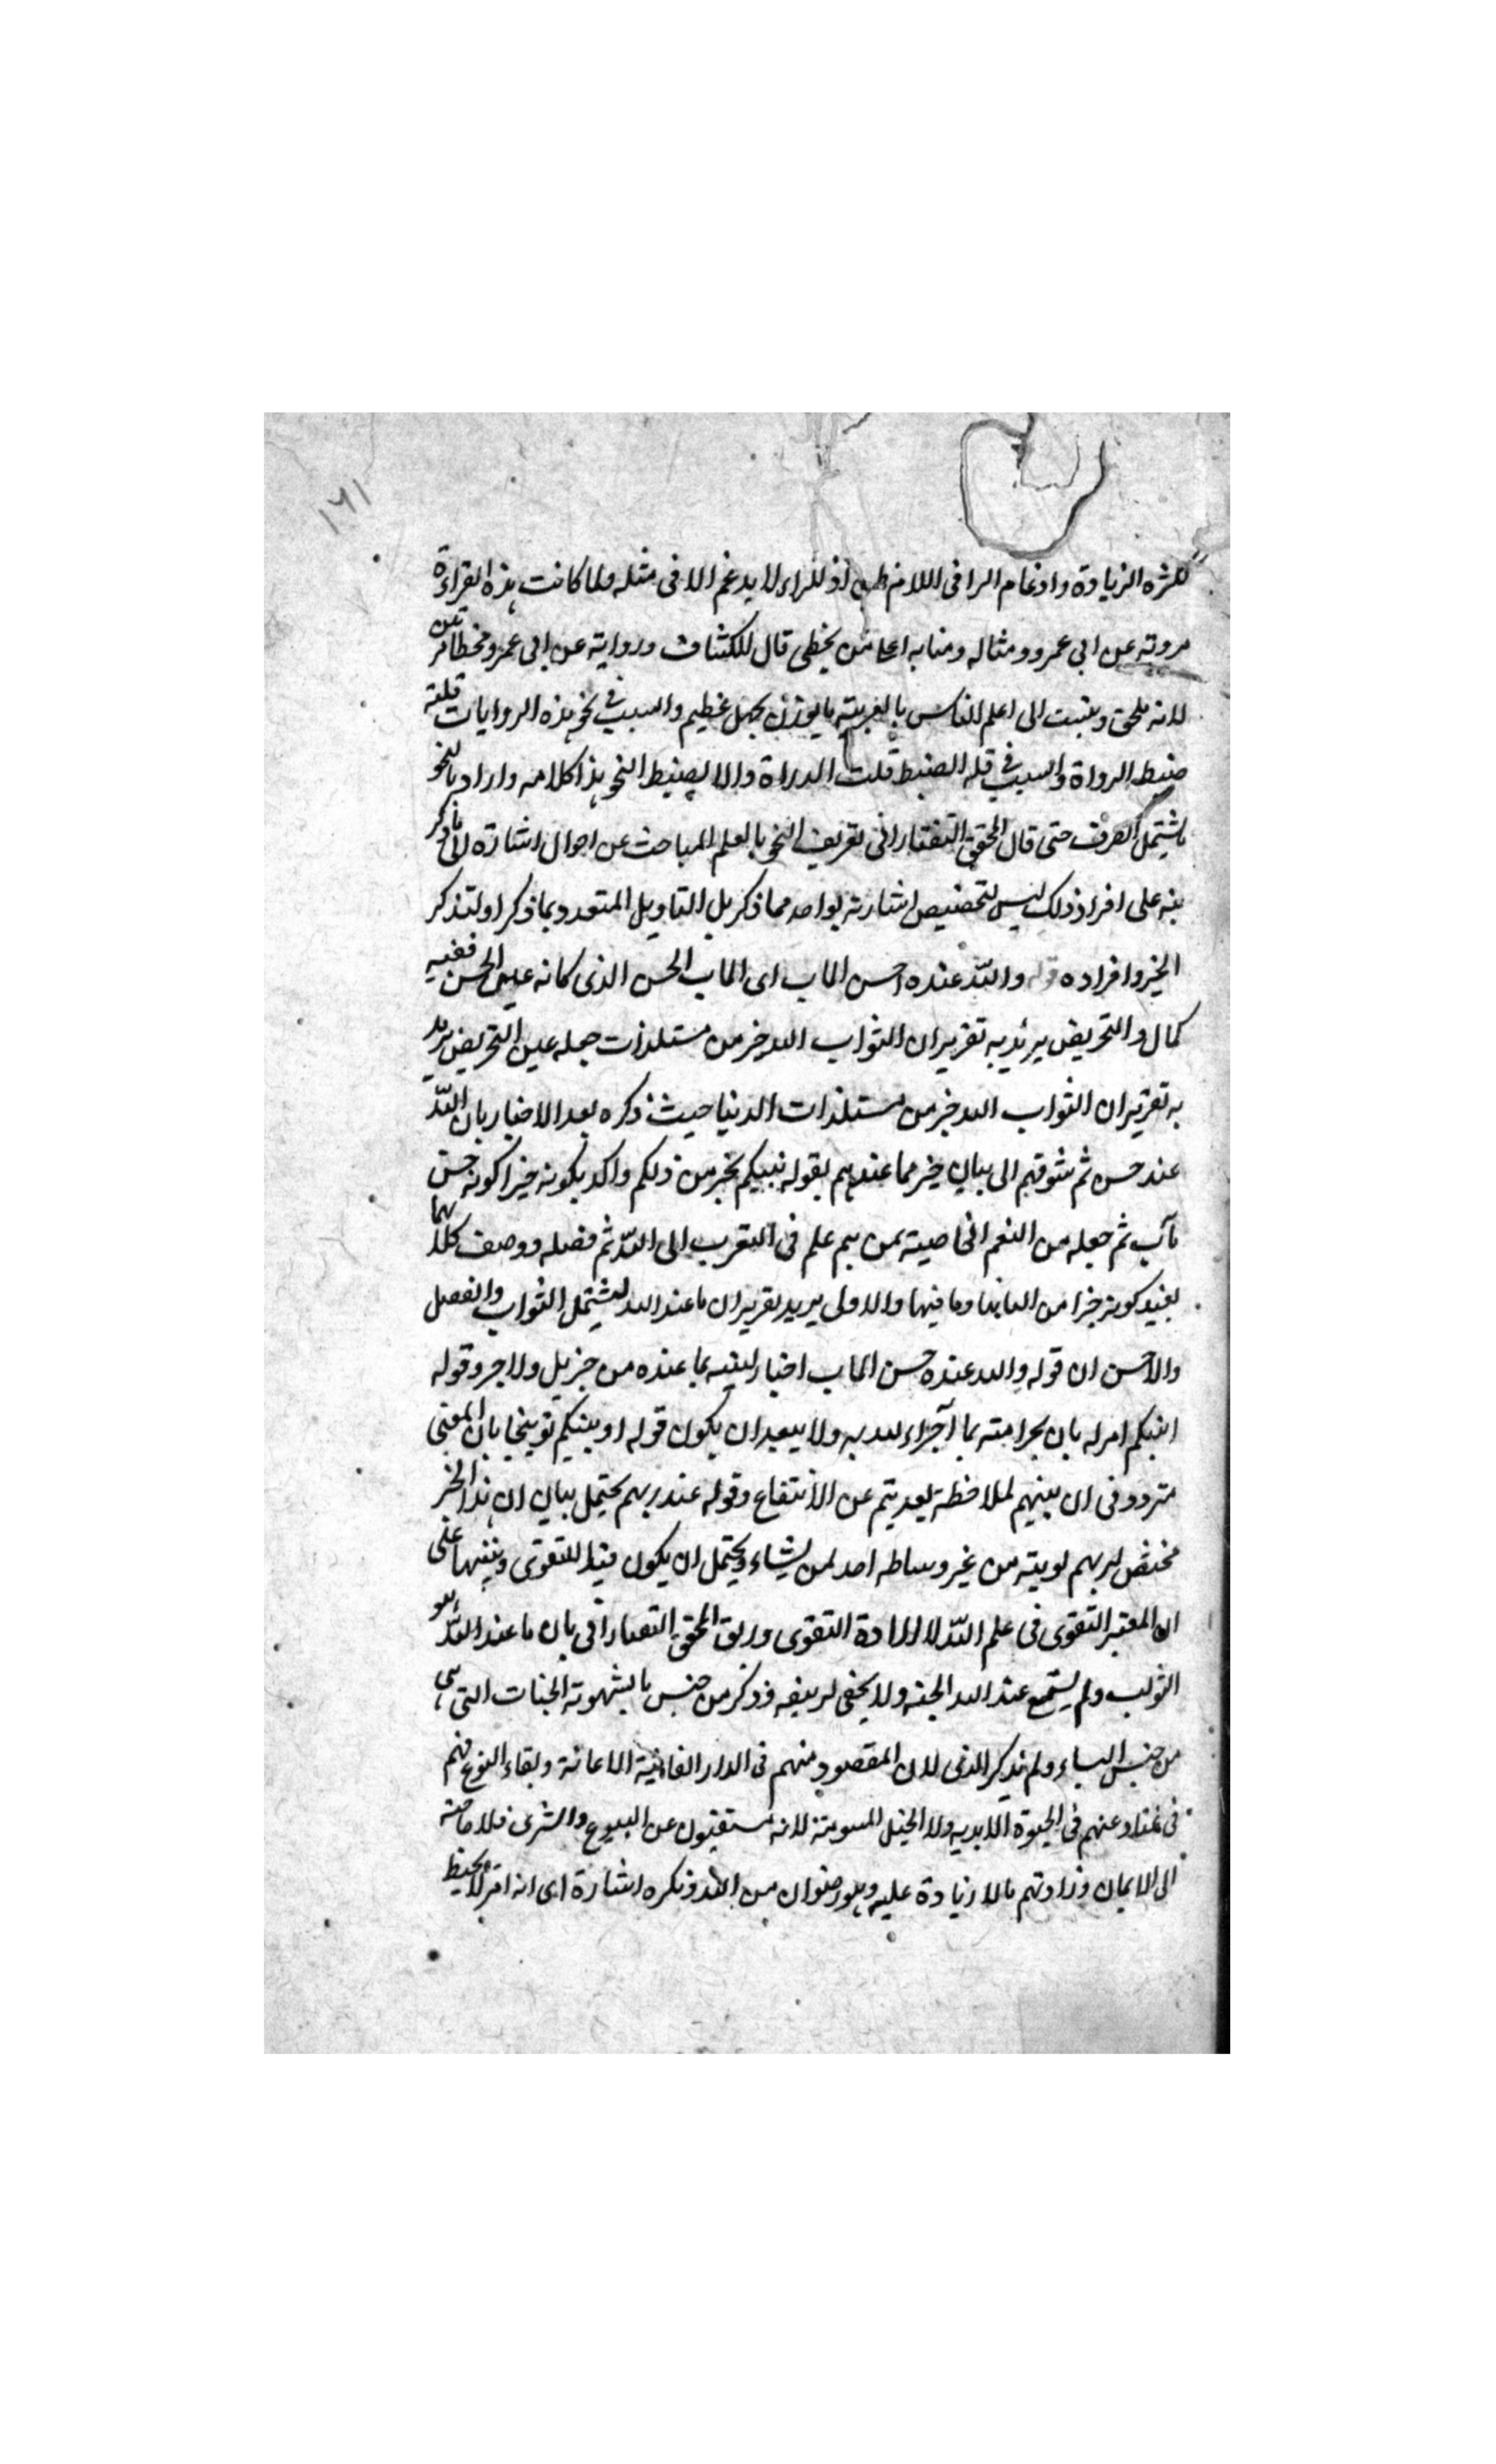 ١٦١
لكثرة الزيادة وادغام الرا فى اللام اذ للراء لا يدغم الا فى مثله ولما كانت هذه القراءة
مروته عن ابى عمرو ومثاله ومنابه من يخطى قال للكشاف وروايته عن ابى عمرو مخطا مر
لانه يلحق وينبت الى اعلم الناس بالعربيته ما يوذن بجهل عظيم والسبب فى نحو هذه الروايات قلته
ضبط الرواة والسبب فى قله الضبط قلت الدراة والا يضبط النحو هذا كلامه واراد بالنحو
ما يشتمل الصرف حتى قال المحقق التفتازانى تعريف النحو بالعلم المباحث عن احوال اشارة الى ما ذكر
نبه على افراد ذلك ليس لتخصيص اشارته بواحد مما ذكر بل التاويل المتعدد بما ذكر او لتذكر
الخير وافراده قوله والله عنده حسن الماب اى الماب الحسن الذى كانه عين الحسن ففيه
كمال والتحريض يريد به تقرير ان الثواب الله خير من مستلذات جعله عين التحريض يريد
به تقرير ان الثواب الله خير من مستلذات الدنيا حيث ذكره بعد الاخبار بان الله
عند حسن ثم شوقهم الى بيان خير مما عندهم بقوله نبيكم بخير من ذلكم واكد بكونه خيرا كونه حسن
مآب ثم جعله من النعم الخاصيته بمن هم علم فى التقرب الى الله ثم فصله ووصف كلا بما
يفيد كونه خيرا من الدنيا وما فيها والاولى يريد تقرير ان ما عند الله ليشتمل الثواب والفضل
والاحسن ان قوله والله عنده حسن الماب اخبار لنبيه بما عنده من جزيل ولاجر وقوله
انبئكم امر له بان بما ولا يبعد ان يكون قوله اونبئكم توبيخا بان المعنى
متردد فى ان ينبئهم لملاحظة بعديتهم عن الانتفاع وقوله عند ربهم يحتمل بيان ان هذا الخير
مختص لربهم من غير وساطه احد لمن يشاء ويحتمل ان يكون قيدا للتقوى وتنبيها على
ان المعتبر التقوى فى علم الله لا ارادة التقوى المحقق التفتازانى بان ما عند الله هو
الثواب ولم يسمع عند الله الجنه ولا يخفى فذكر من جنس ما يشهوته الجنات التى هى
من جنس النساء ولم يذكر الذى لان المقصود منهم فى الدار الفانية الاعانة وبقاء النوع فهم
فى غناء عنهم فى الحيوة الابديه ولا الخيل المسومته لانه مستغنون عن البيوع والشرى فلا حاجته
الى الايمان وزادتهم ما لا زيادة عليه وهو رضوان من الله ونكره اشارة اى انه امر لا يحيط